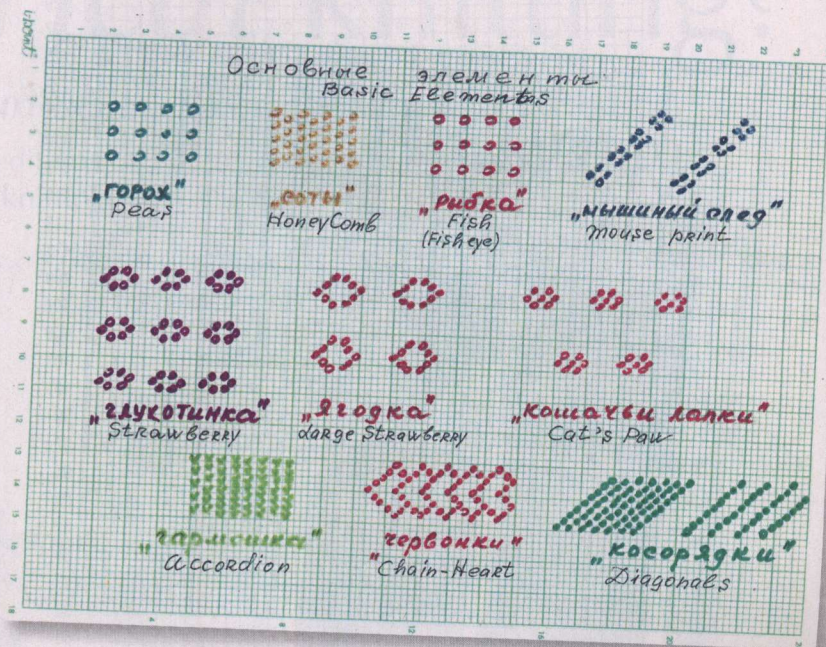 Основные элементы
Basic Elements
„горох"
Peas
„соты"
HoneyComb
„рыбка"
Fish
(Fish eye)
„мышиный след"
mouse print
„глухотинка"
Strawberry
„Ягодка"
Large Strawberry
„кошачьи лапки"
Cat's Paw
„гармошка"
Accordion
„червонки"
Chain-Heart
„косорядки"
Diagonals